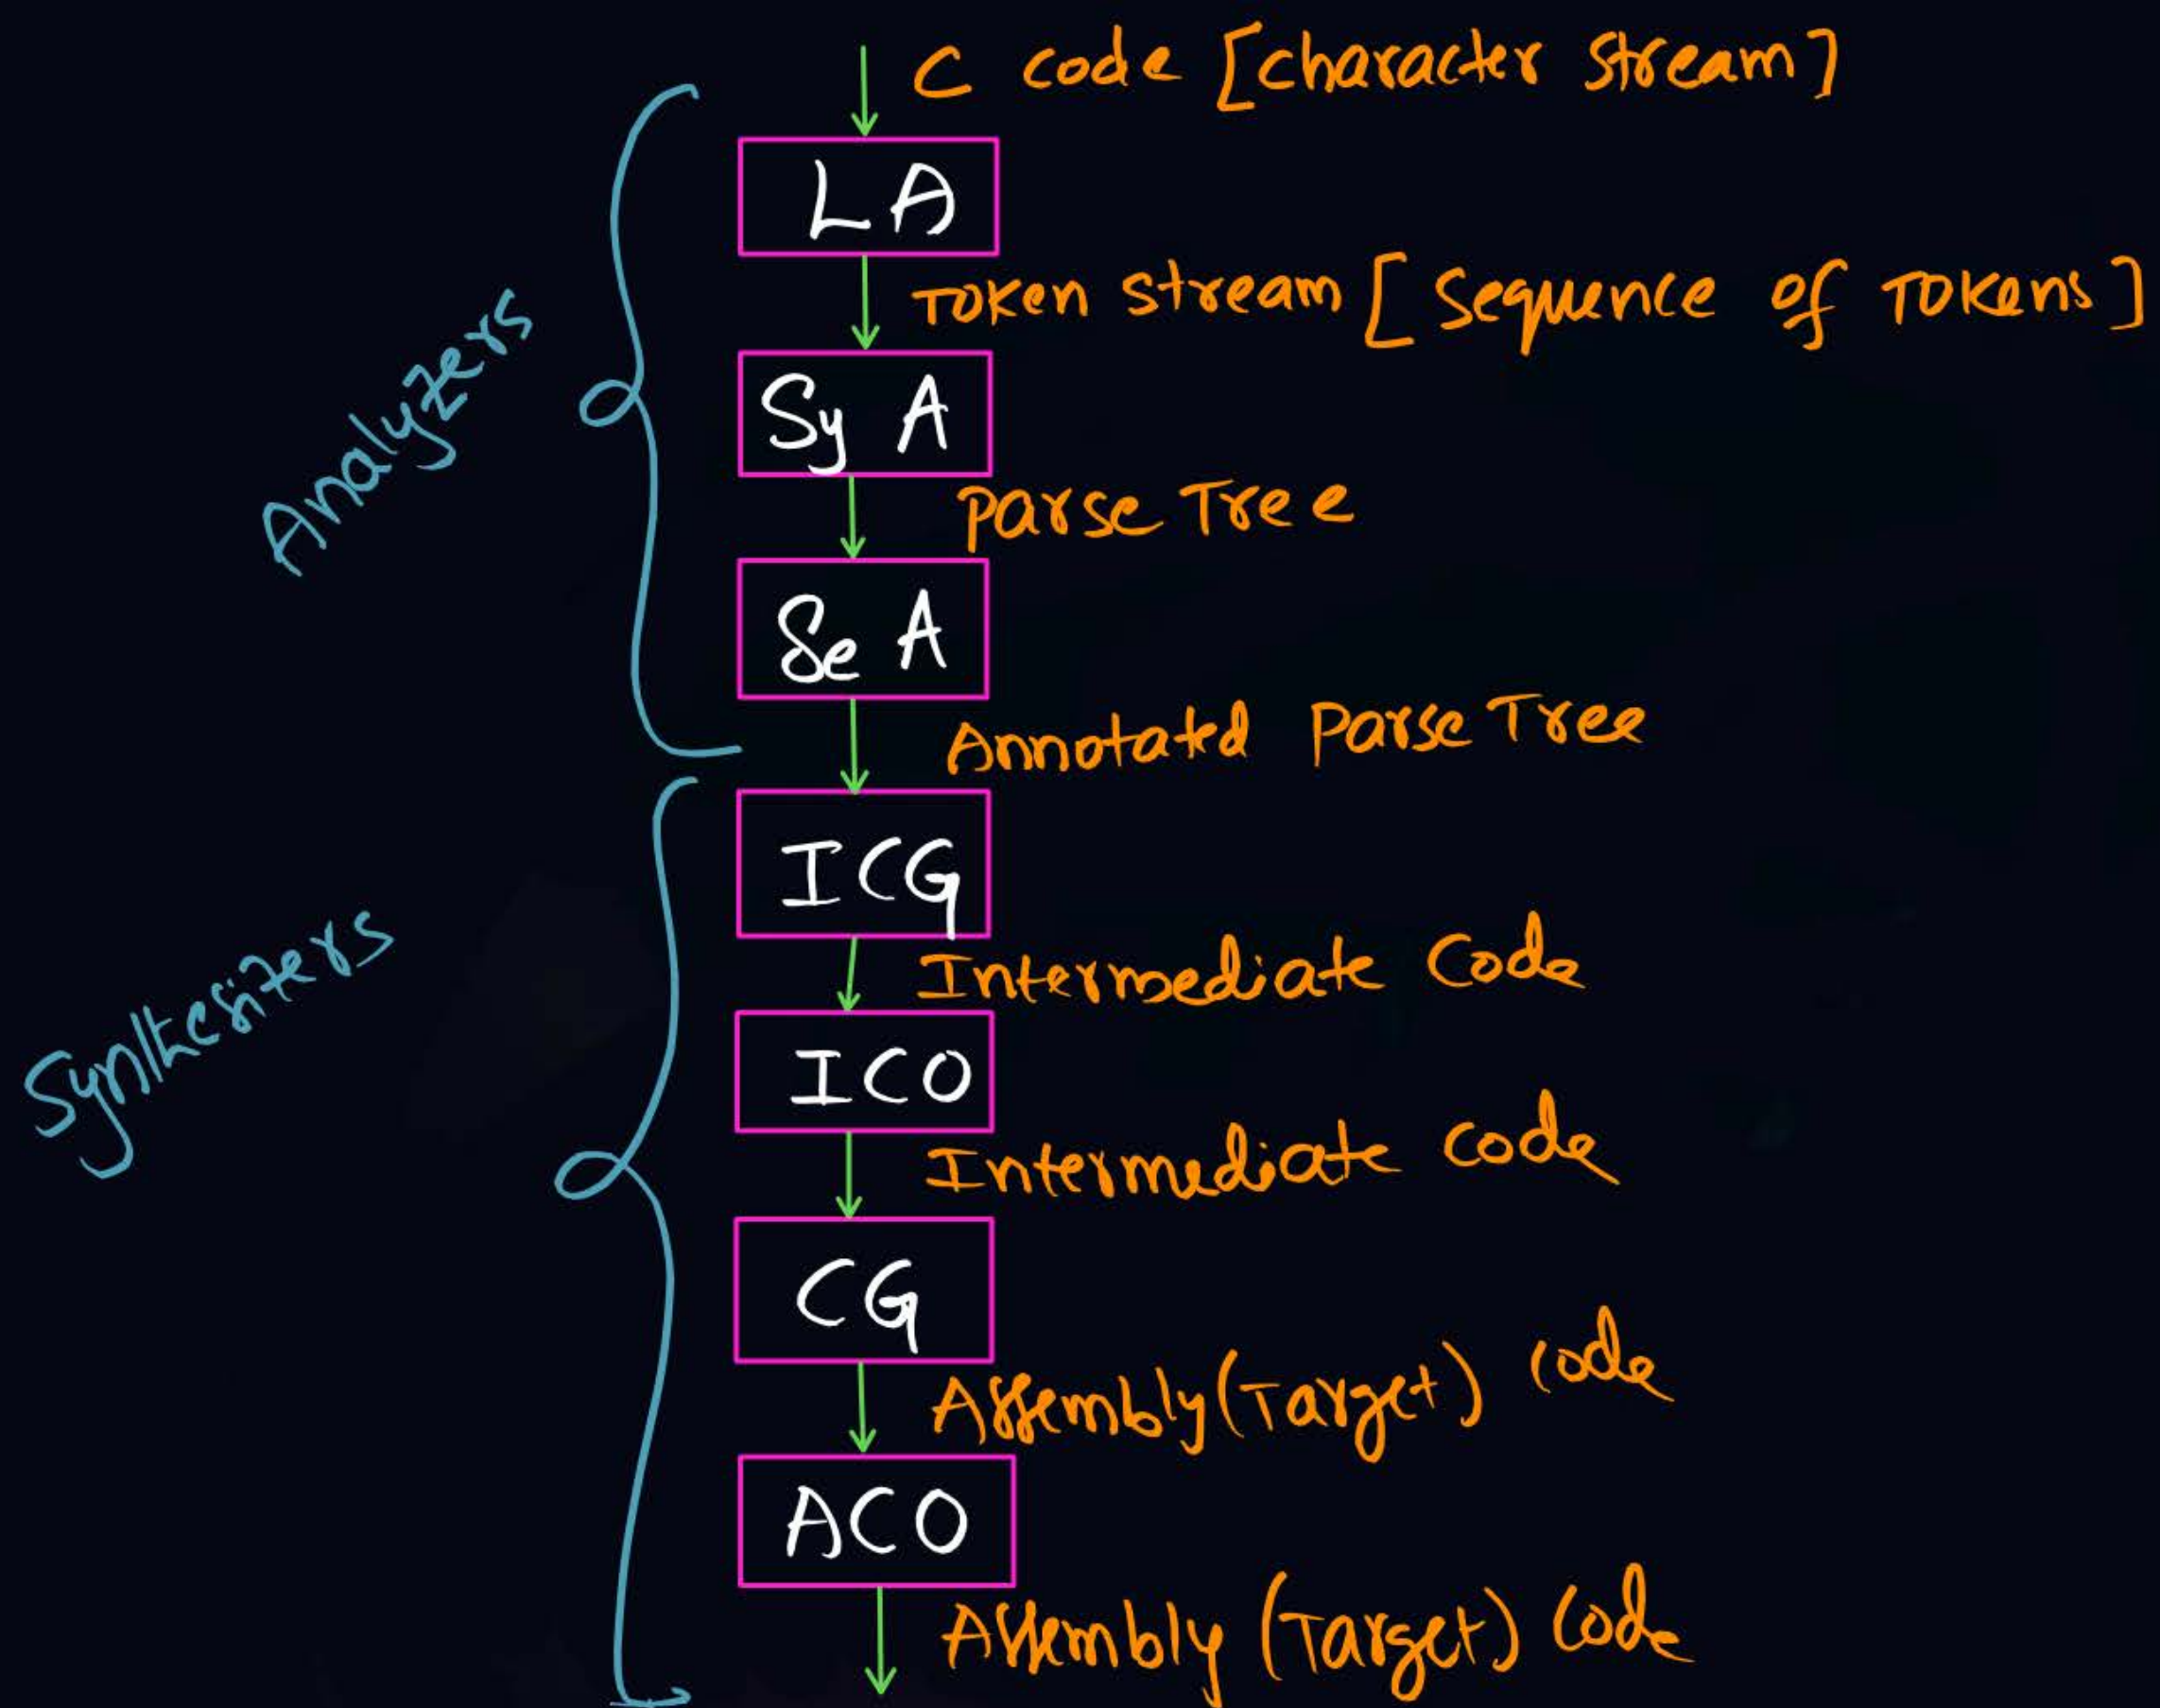 C code [character stream]
LA
Token stream [sequence of Tokens]
Sy A
Parse Tree
Se A
Annotated Parse Tree
Analyzers
ICG
Intermediate Code
ICO
Intermediate code
CG
Assembly (Target) code
ACO
Assembly (Target) Code
Synthesizers